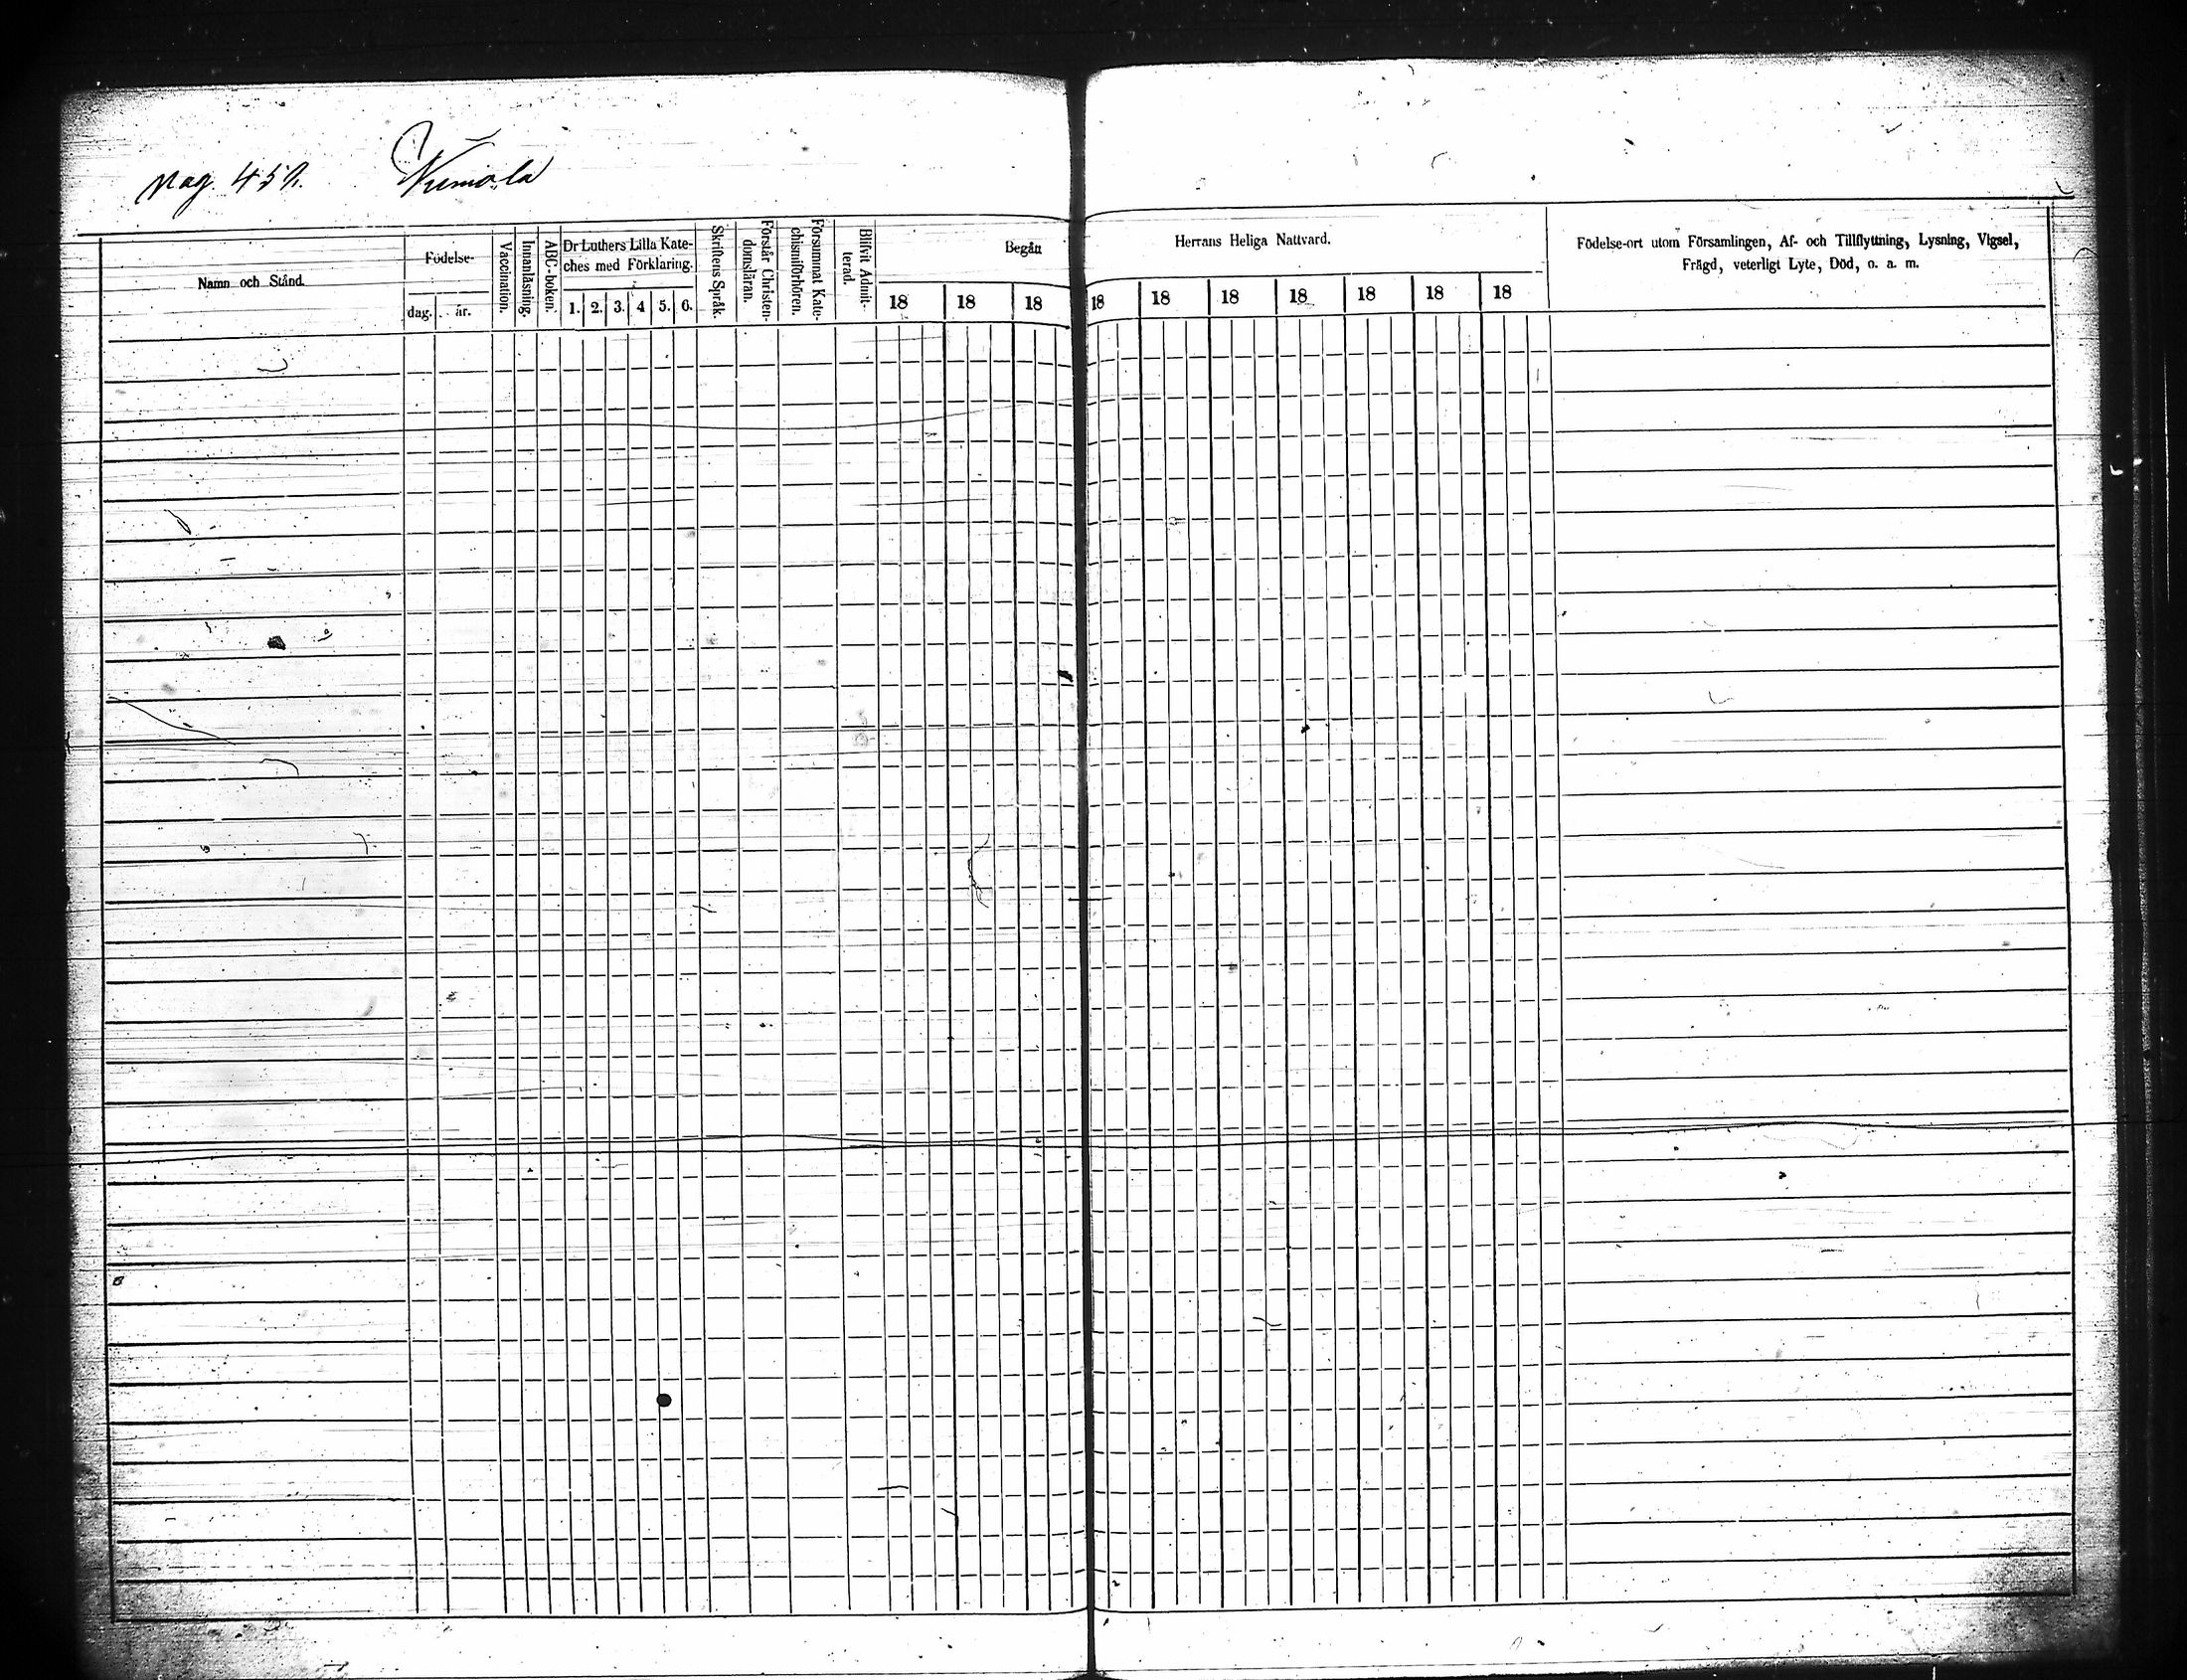 pag. 452. Numola
Namn och Stånd.
Födelse-
dag. år.
Vaccination.
Innanläsning.
ABC-boken.
Dr Luthers Lilla Kate-
ches med Förklaring.
1. 2. 3. 4 5. 6.
Skriftens Språk.
Förstår Christen-
domsläran.
Försummat Kate-
chismiförhören.
Blifvit Admit-
terad.
Begått Herrans Heliga Nattvard.
18 18 18 18 18 18 18 18 18 18
Födelse-ort utom Församlingen, Af- och Tillflyttning, Lysning, Vigsel,
Frägd, veterligt Lyte, Död, o. a. m.